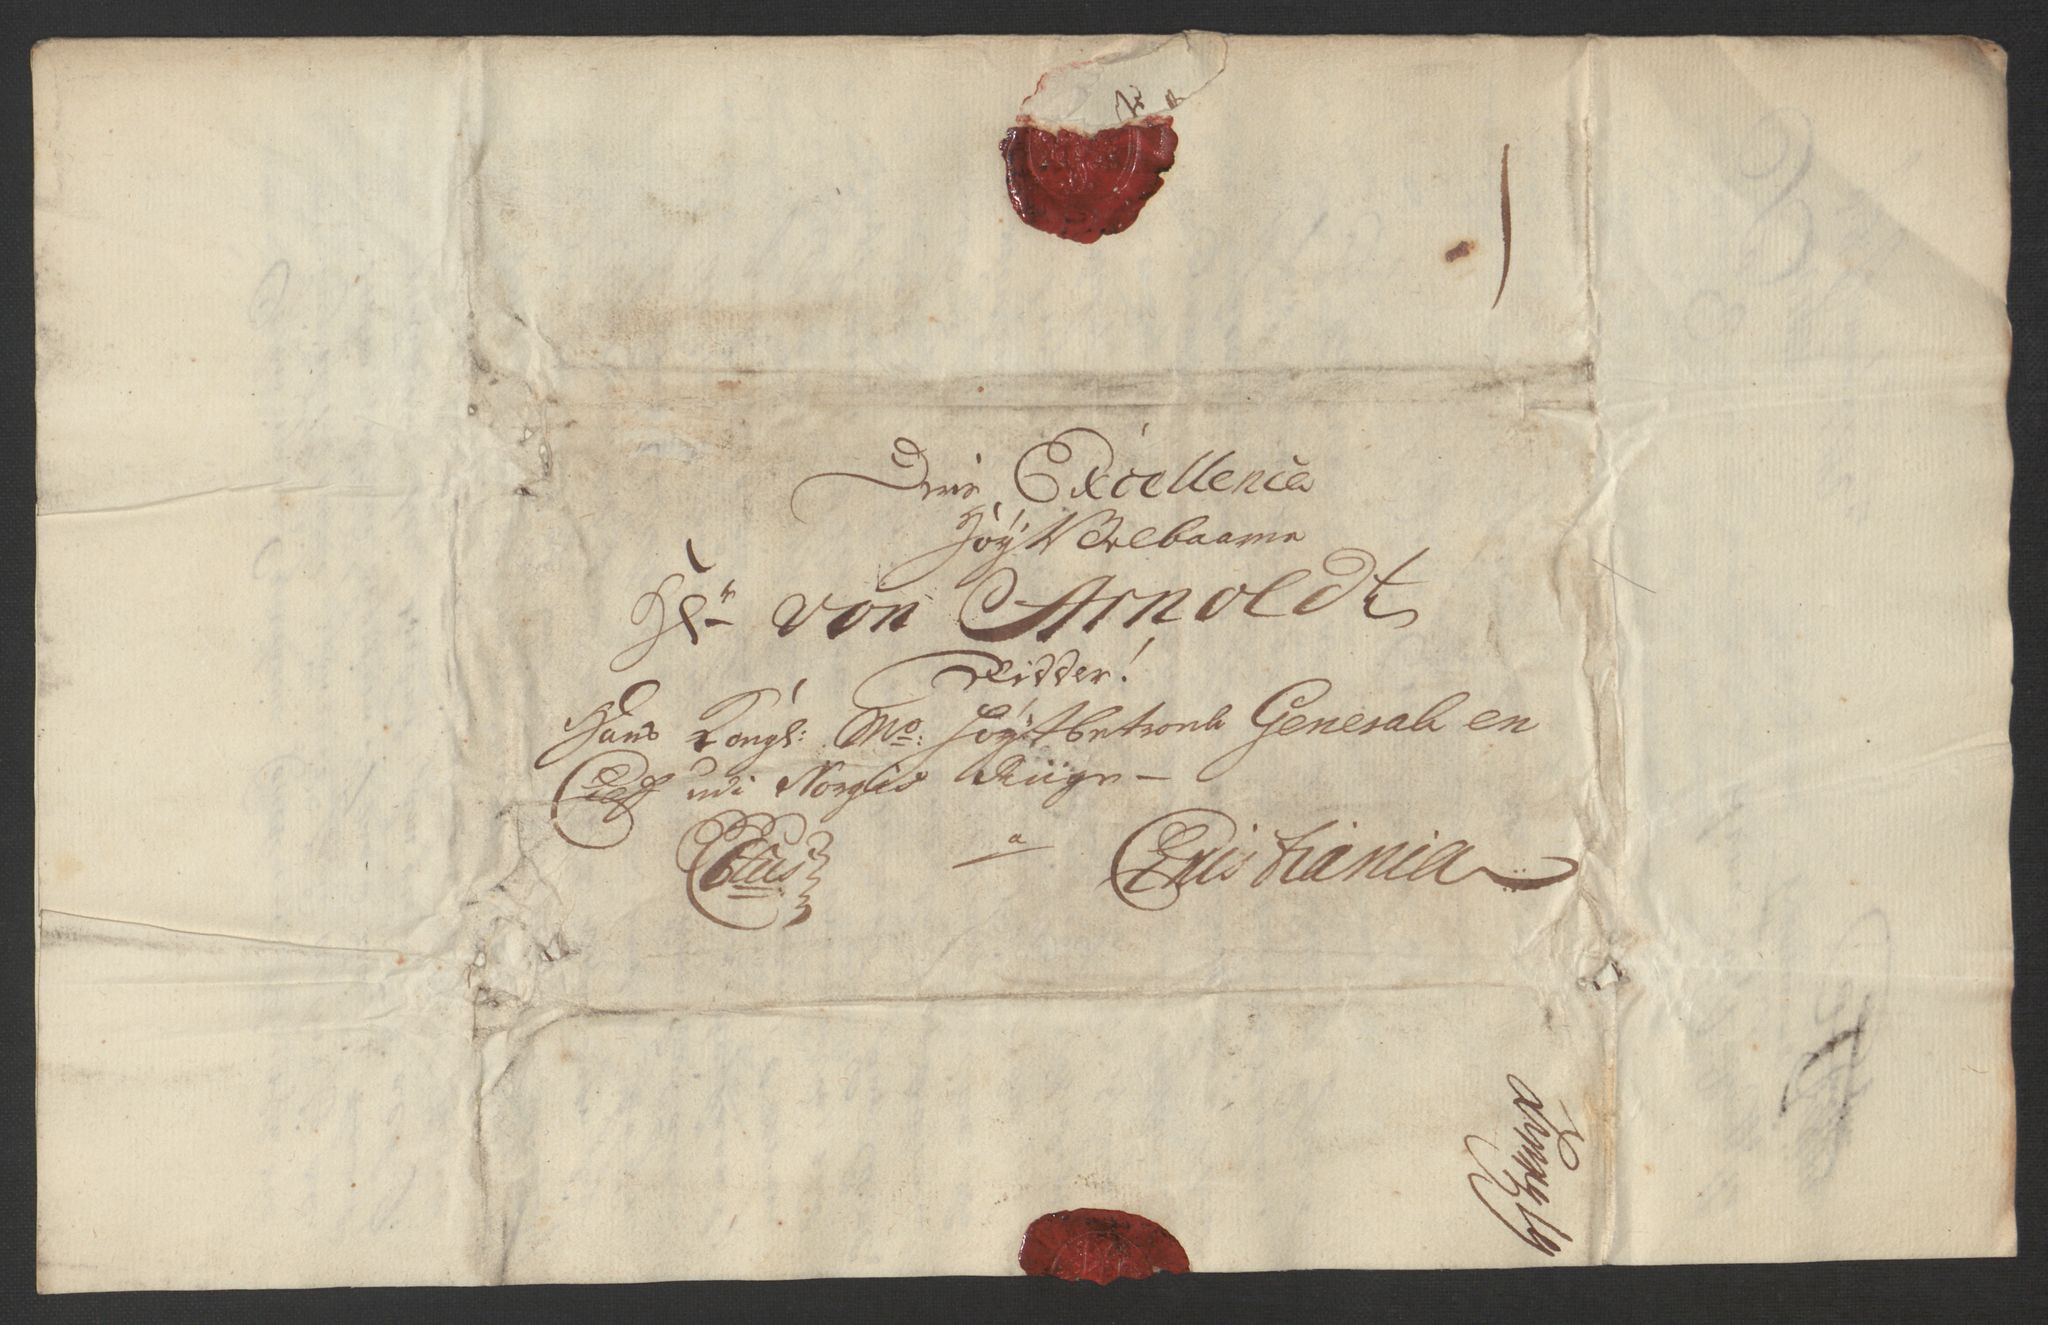 Deris Excellence
HöyVelbaarne
Hr von Arnoldt
Ridder!
Hans Kongl: Mas: Höyst betroede General en
Chef udi Norges Riige —
a Christiania